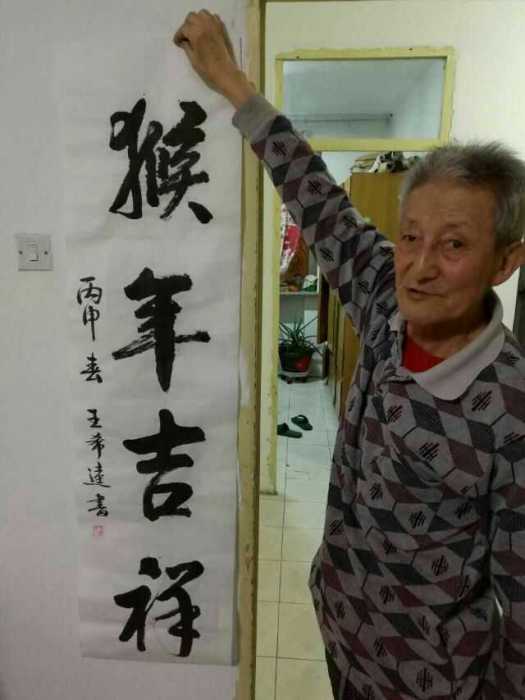 猴年吉祥
丙申春 王希達書